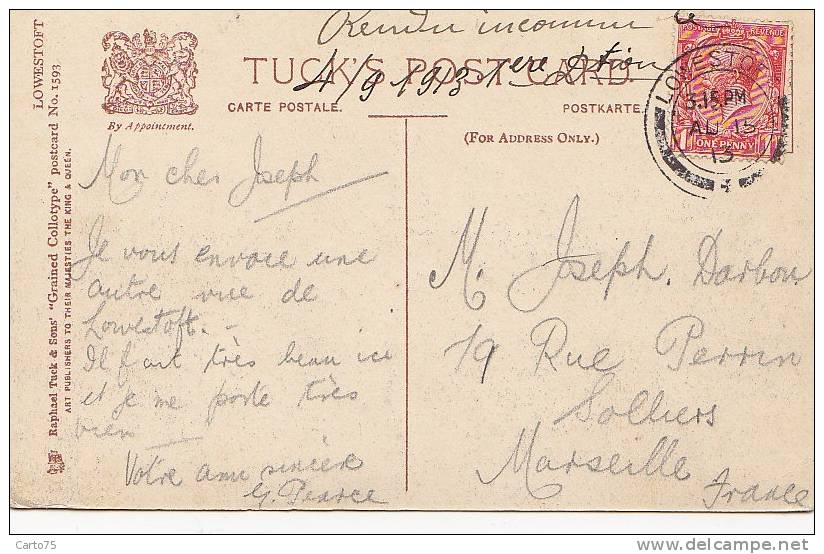 LOWESTOFT
Raphael Tuck & Sons' "Grained Collotype" postcard No. 1593
ART PUBLISHERS TO THEIR MAJESTIES THE KING & QUEEN.
By Appointment.
Rendu inconnu
4/9 1913 1ere
TUCK'S POST CARD.
CARTE POSTALE.
POSTKARTE.
(FOR ADDRESS ONLY.)
POSTAGE REVENUE
ONE PENNY
LOWESTOFT
3.15 PM
AU 15
13
Mon cher Joseph
Je vous envoie une
autre vue de
Lowestoft. -
Il fait très beau ici
et je me porte très
bien
Votre ami sincère
G. Pearce
M. Joseph. Darbon
19 Rue Perrin
Solliers
Marseille
France
Carto75
www.delcampe.net